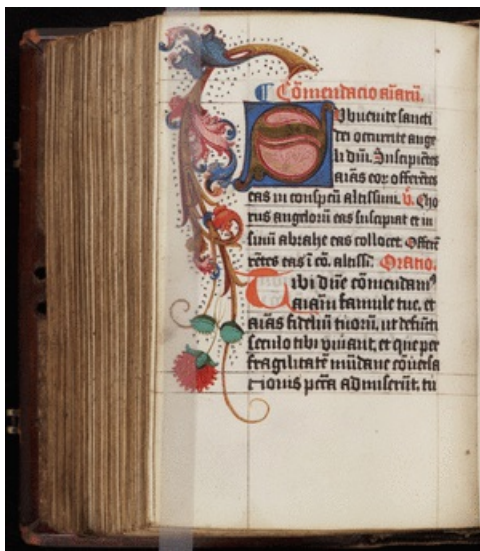 ¶ Cōmendacio aīarū.
Subuenite sancti
dei occurrite ange
li dn̄i. Suscipiētes
aīās eoȝ offerētes
eas in conspcū altissimi. ꝟ. Cho
rus angeloꝝ eas suscipiat et in
sinū abrahe eas collocet. Offerē
rētes eas ī cō. altissi. Oratio.
Tibi dn̄e cōmendamꝰ
aīam famule tue, et
aīas fideliū tuorū, ut defūcti
seculo tibi viuant, et que per
fragilitatē mūdane cōuersa
tionis pctā admiserūt, tu